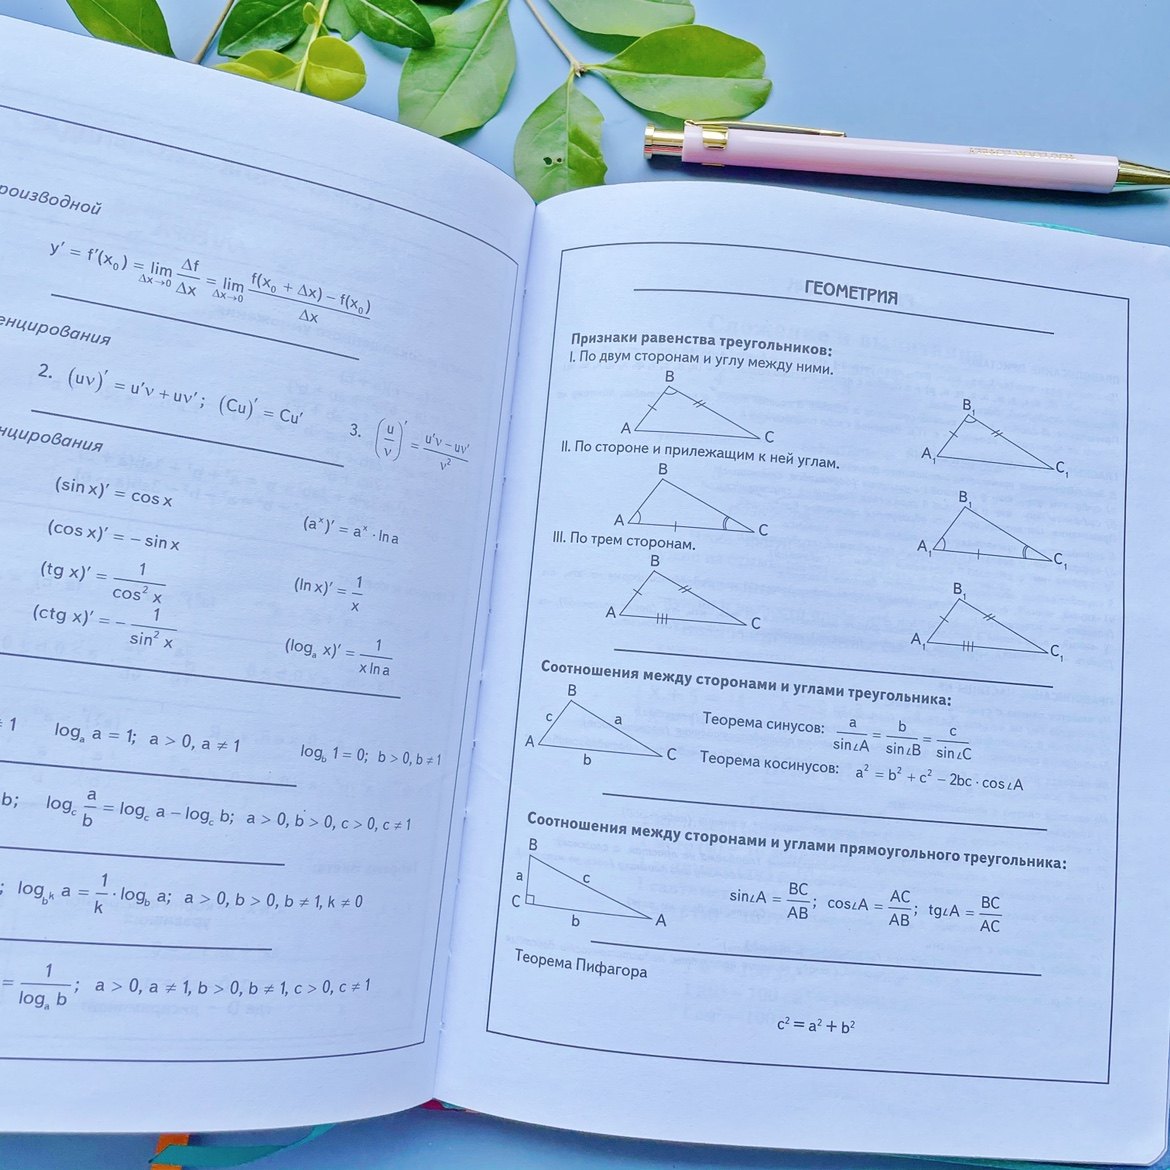 роизводной
y′ = f′(x₀) = lim Δx→0 Δf/Δx = lim Δx→0 (f(x₀ + Δx) − f(x₀))/Δx
енцирования
2. (uv)′ = u′v + uv′; (Cu)′ = Cu′
3. (u/v)′ = (u′v − uv′)/v²
нцирования
(sin x)′ = cos x
(aˣ)′ = aˣ · ln a
(cos x)′ = − sin x
(tg x)′ = 1/cos² x
(ln x)′ = 1/x
(ctg x)′ = − 1/sin² x
(logₐ x)′ = 1/(x ln a)
≠ 1 logₐ a = 1; a > 0, a ≠ 1 log_b 1 = 0; b > 0, b ≠ 1
b; log_c a/b = log_c a − log_c b; a > 0, b > 0, c > 0, c ≠ 1
; log_{b^k} a = 1/k · log_b a; a > 0, b > 0, b ≠ 1, k ≠ 0
= 1/logₐ b; a > 0, a ≠ 1, b > 0, b ≠ 1, c > 0, c ≠ 1
ГЕОМЕТРИЯ
Признаки равенства треугольников:
I. По двум сторонам и углу между ними.
B B₁
A C A₁ C₁
II. По стороне и прилежащим к ней углам.
B B₁
A C A₁ C₁
III. По трем сторонам.
B B₁
A C A₁ C₁
Соотношения между сторонами и углами треугольника:
B
c a
A C
b
Теорема синусов: a/sin∠A = b/sin∠B = c/sin∠C
Теорема косинусов: a² = b² + c² − 2bc · cos∠A
Соотношения между сторонами и углами прямоугольного треугольника:
B
a c
C A
b
sin∠A = BC/AB; cos∠A = AC/AB; tg∠A = BC/AC
Теорема Пифагора
c² = a² + b²